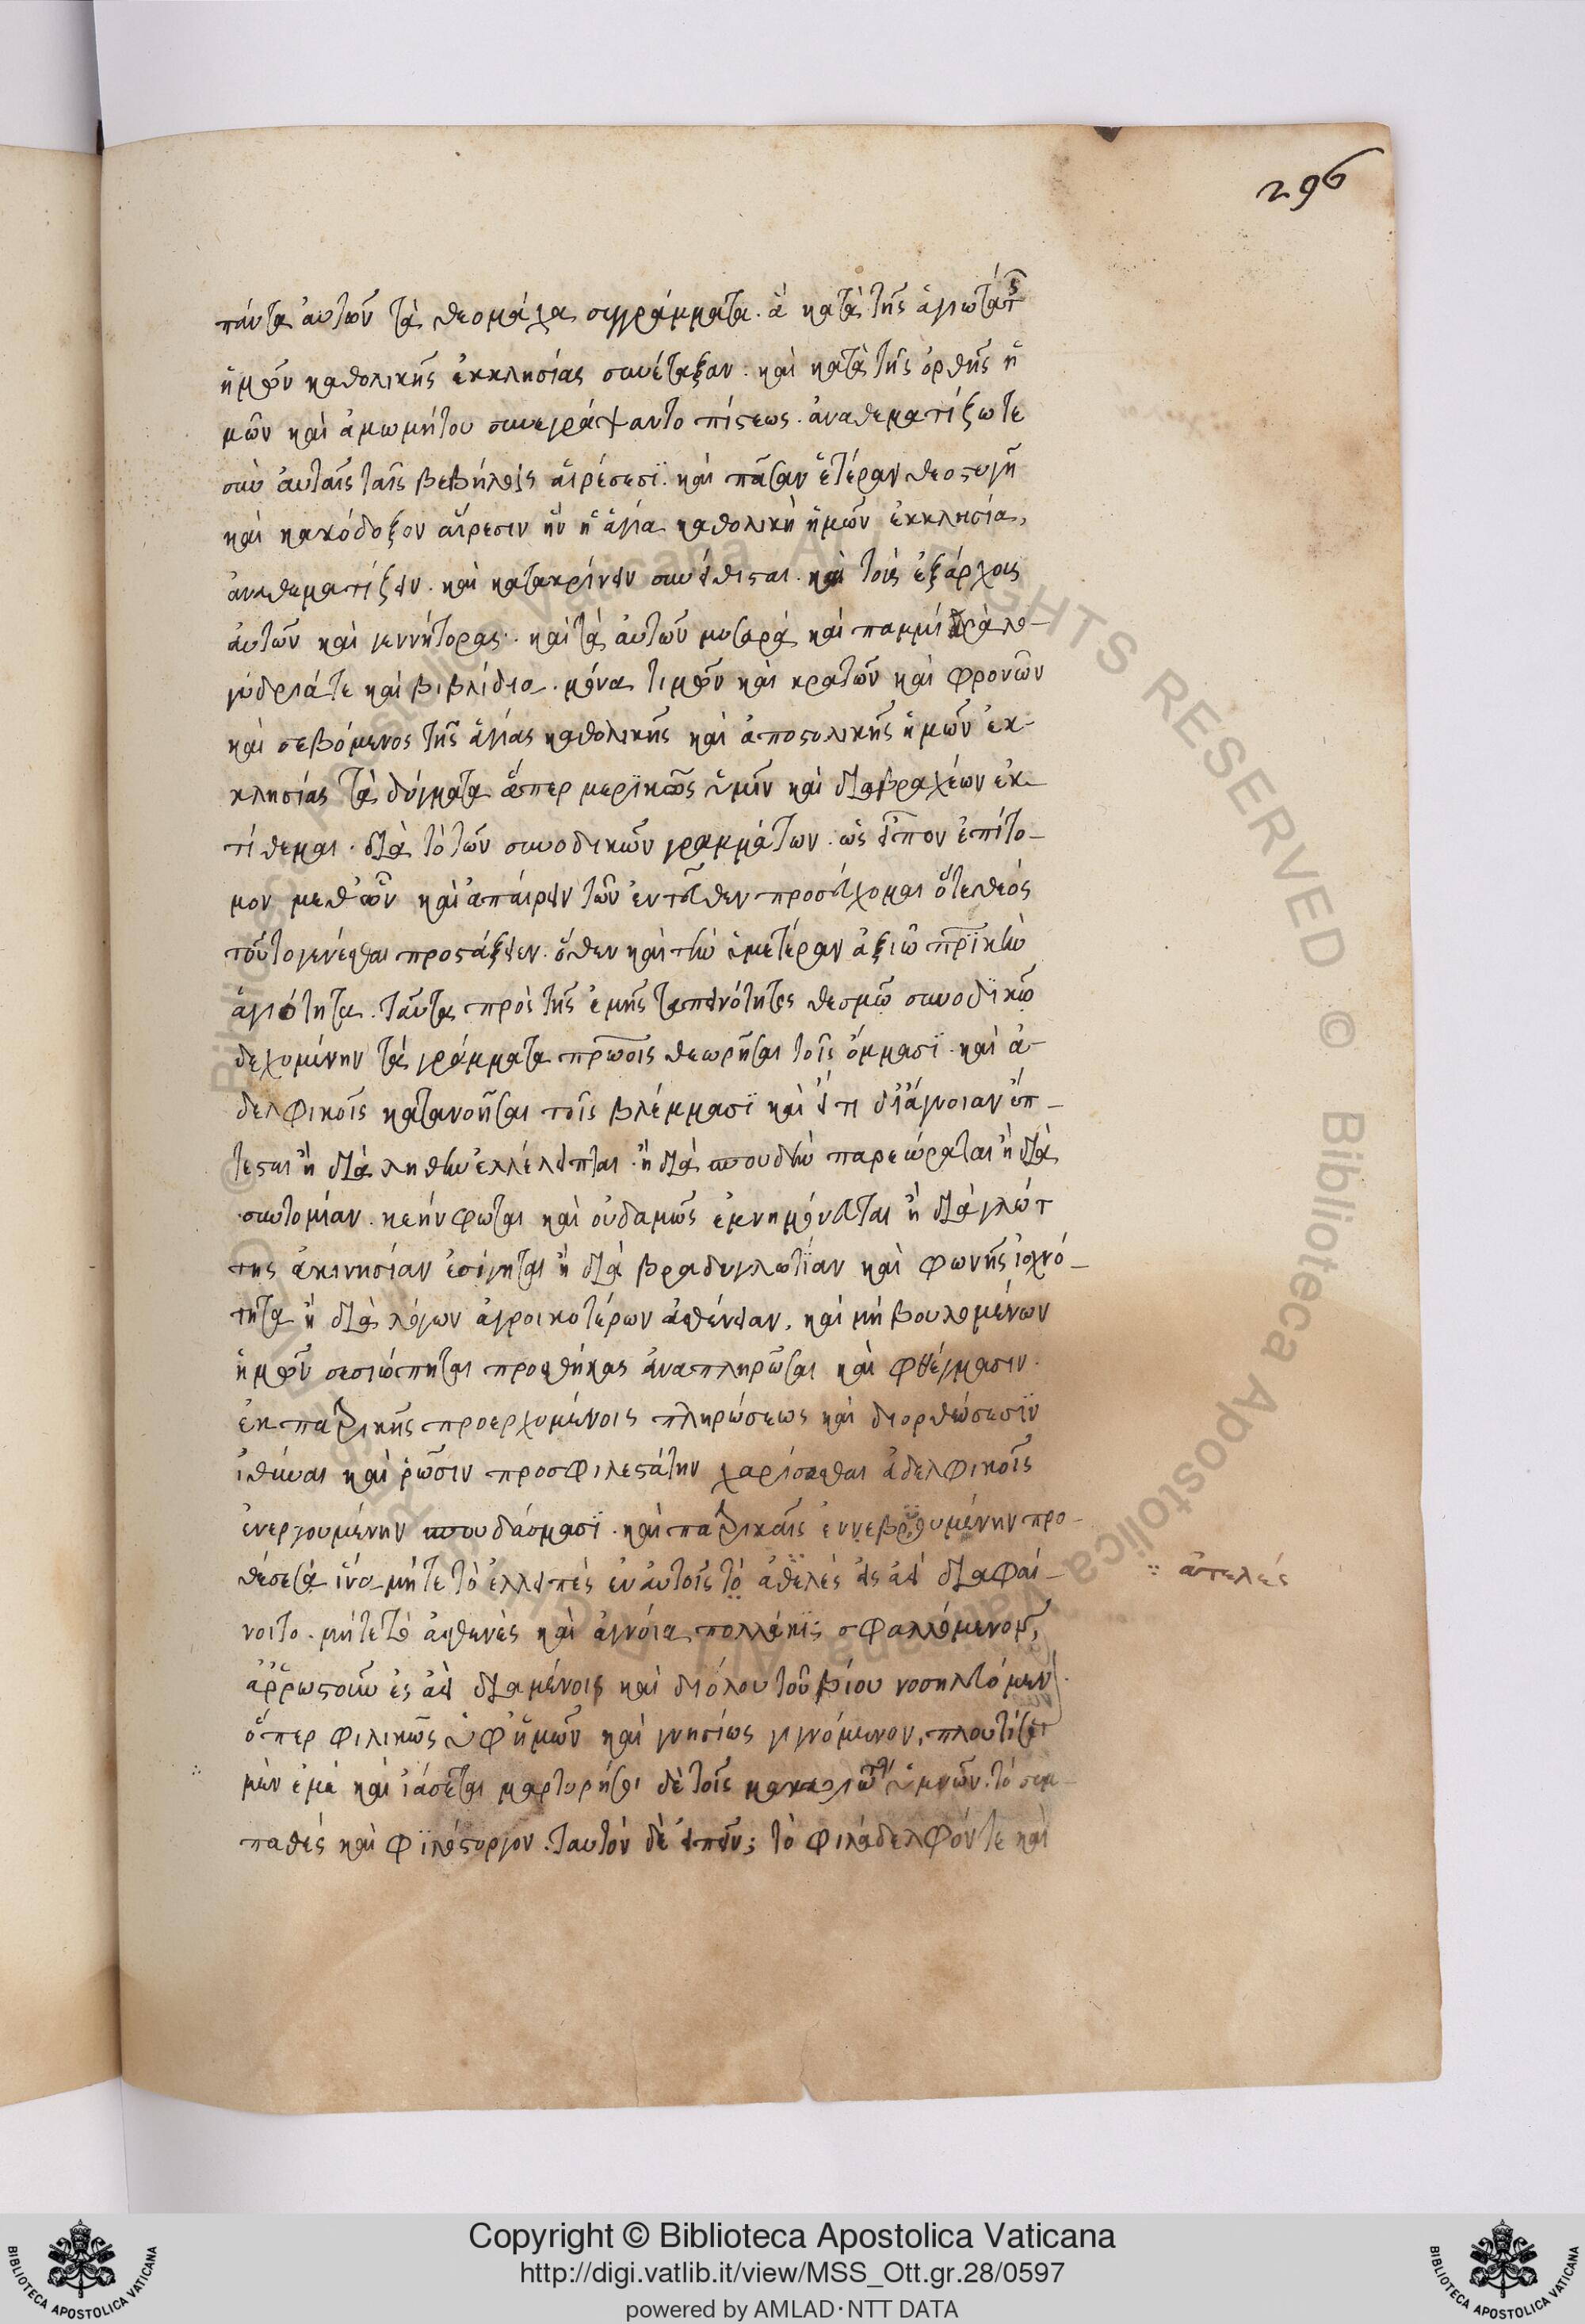 296
πάντα αυτῶν τὰ θεομάχα συγγράμματα. ἃ κατὰ τῆς ἁγιωτάτης
ἡμῶν καθολικῆς ἐκκλησίας συνέταξαν. καὶ κατὰ τῆς ὀρθῆς ἡ
μῶν καὶ ἀμωμήτου συνεγράψαντο πίστεως. ἀναθεματίζω τε
σὺν αὐταῖς ταῖς βεβήλοις αἱρέσεσϊ. καὶ πᾶσαν ἑτέραν θεοστυγῆ
καὶ κακόδοξον αἵρεσιν ἣν ἡ ἁγία καθολικὴ ἡμῶν ἐκκλησία,
ἀναθεματίζειν. καὶ κατακρίνειν συνείθισται. καὶ τοὺς ἐξάρχους
αὐτῶν καὶ γεννήτορας. καὶ τὰ αὐτῶν μυσαρὰ καὶ παμμίαρα λο-
γύδριά τε καὶ βιβλίδια. μόνα τιμῶν καὶ κρατῶν καὶ φρονῶν
καὶ σεβόμενος τῆς ἁγίας καθολικῆς καὶ ἀποστολικῆς ἡμῶν ἐκ-
κλησίας τὰ δόγματα ἅπερ μερϊκῶς ὑμῖν καὶ διαβραχέων ἐκ-
τίθεμαι. διὰ τὸ τῶν συνοδικῶν γραμμάτων. ὡς εἶπον ἐπίτο-
μον μεθ ὧν καὶ ἀπαίρειν τῶν ἐντεῦθεν προσεύχομαι ὅτε θεός
τοῦτο γενέσθαι προστάξειεν. ὅθεν καὶ τὴν ὑμετέραν ἀξιῶ πρϊκὴν
ἁγιότητα. ταῦτα πρὸς τῆς ἐμῆς ταπεινότητος θεσμῶ συνοδϊκῶ
δεχομένην τὰ γράμματα πρώοις θεωρῆσαι τοῖς ὄμμασϊ. καὶ ἀ-
δελφικοῖς κατανοῆσαι τοῖς βλέμμασϊ καὶ εἴ τι δϊ ἄγνοιαν ὕπ-
τεσται ἢ διὰ λήθην ἐλλέλειπται. ἢ διὰ σπουδὴν παρεώραται ἢ διὰ
συντομίαν. κεκύφωται καὶ οὐδαμῶς ἐμνημόνευται ἢ διὰ γλώτ
της ἀκινησίαν ἐσίγηται ἢ διὰ βραδυγλωτίαν καὶ φωνῆς ἰσχνό-
τητα ἢ διὰ λόγων ἀγροικοτέρων ἀσθένειαν, καὶ μὴ βουλομένων
ἡμῶν σεσιώπηται προσθήκας ἀναπληρῶσαι καὶ φθέγμασιν.
ἐκ πατρικῆς προερχομένοις πληρώσεως καὶ διορθώσεσϊν
ἰθῦναι καὶ ῥῶσιν προσφιλεστάτην χαρίσασθαι ἀδελφικοῖς
ἐνεργουμένην σπουδάσμασϊ. καὶ πατρικαῖς
θέσεσϊ ἵνα μήτε τὸ ἐλλειπὲς ἐν αὐτοῖς τὸ ἀθελὲς εἰς ἀεὶ διαφαί-
∵ ἀτελές
νοιτο. μήτε τὸ ἀσθενὲς καὶ ἀγνοία πολλάκις σφαλλόμενον,
ἀῤῥωστοῦν ἐς ἀεὶ διαμένοις καὶ διόλου τοῦ βίου νοσηλευόμεν
ὅπερ φιλικῶς ὑφ ἡμῶν καὶ γνησίως γιγνόμενον, πλουτίσει
μὲν ἐμὲ καὶ ἰάσεται μαρτυρήσει δὲ τοῖς ὑμνῶν. τὸ συμ-
παθές καὶ φϊλόστοργον. ταυτὸν δὲ εἰπεῖν; τὸ φιλάδελφόν τε καὶ
Copyright © Biblioteca Apostolica Vaticana
http://digi.vatlib.it/view/MSS_Ott.gr.28/0597
powered by AMLAD·NTT DATA